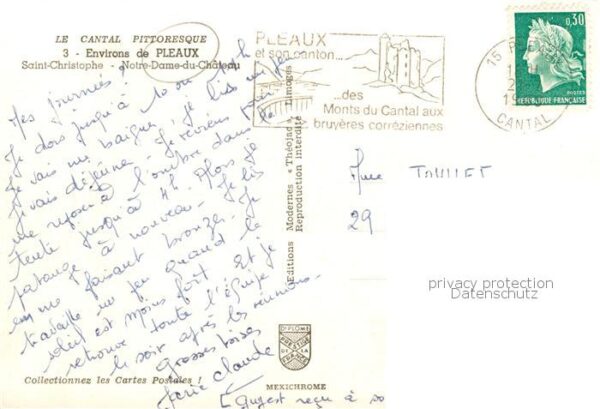 LE CANTAL PITTORESQUE
3 - Environs de PLEAUX
Saint-Christophe - Notre-Dame-du-Château
Mes journées ?
Je dors jusqu'à 10 ou
Je vais me baigner, je lis un peu
Je vais déjeuner. Je reviens
me reposer à l'ombre dans la
tente jusqu'à 4h. Alors je
patauge à nouveau. Je lis
en me faisant bronzer. Je
travaille un peu quand le
soleil est moins fort. Et je
retrouve toute l'équipe
le soir après les réunions.
grosses bises
Marie Claude
reçu à
Collectionnez les Cartes Postales !
Editions Modernes « Théojac », Limoges
Reproduction interdite
DIPLOME
PRESTIGE
DE LA
FRANCE
MEXICHROME
PLEAUX
et son canton...
...des
Monts du Cantal aux
bruyères corréziennes
0,30
REPUBLIQUE FRANÇAISE
POSTES
15 PLEAUX
CANTAL
29
privacy protection
Datenschutz